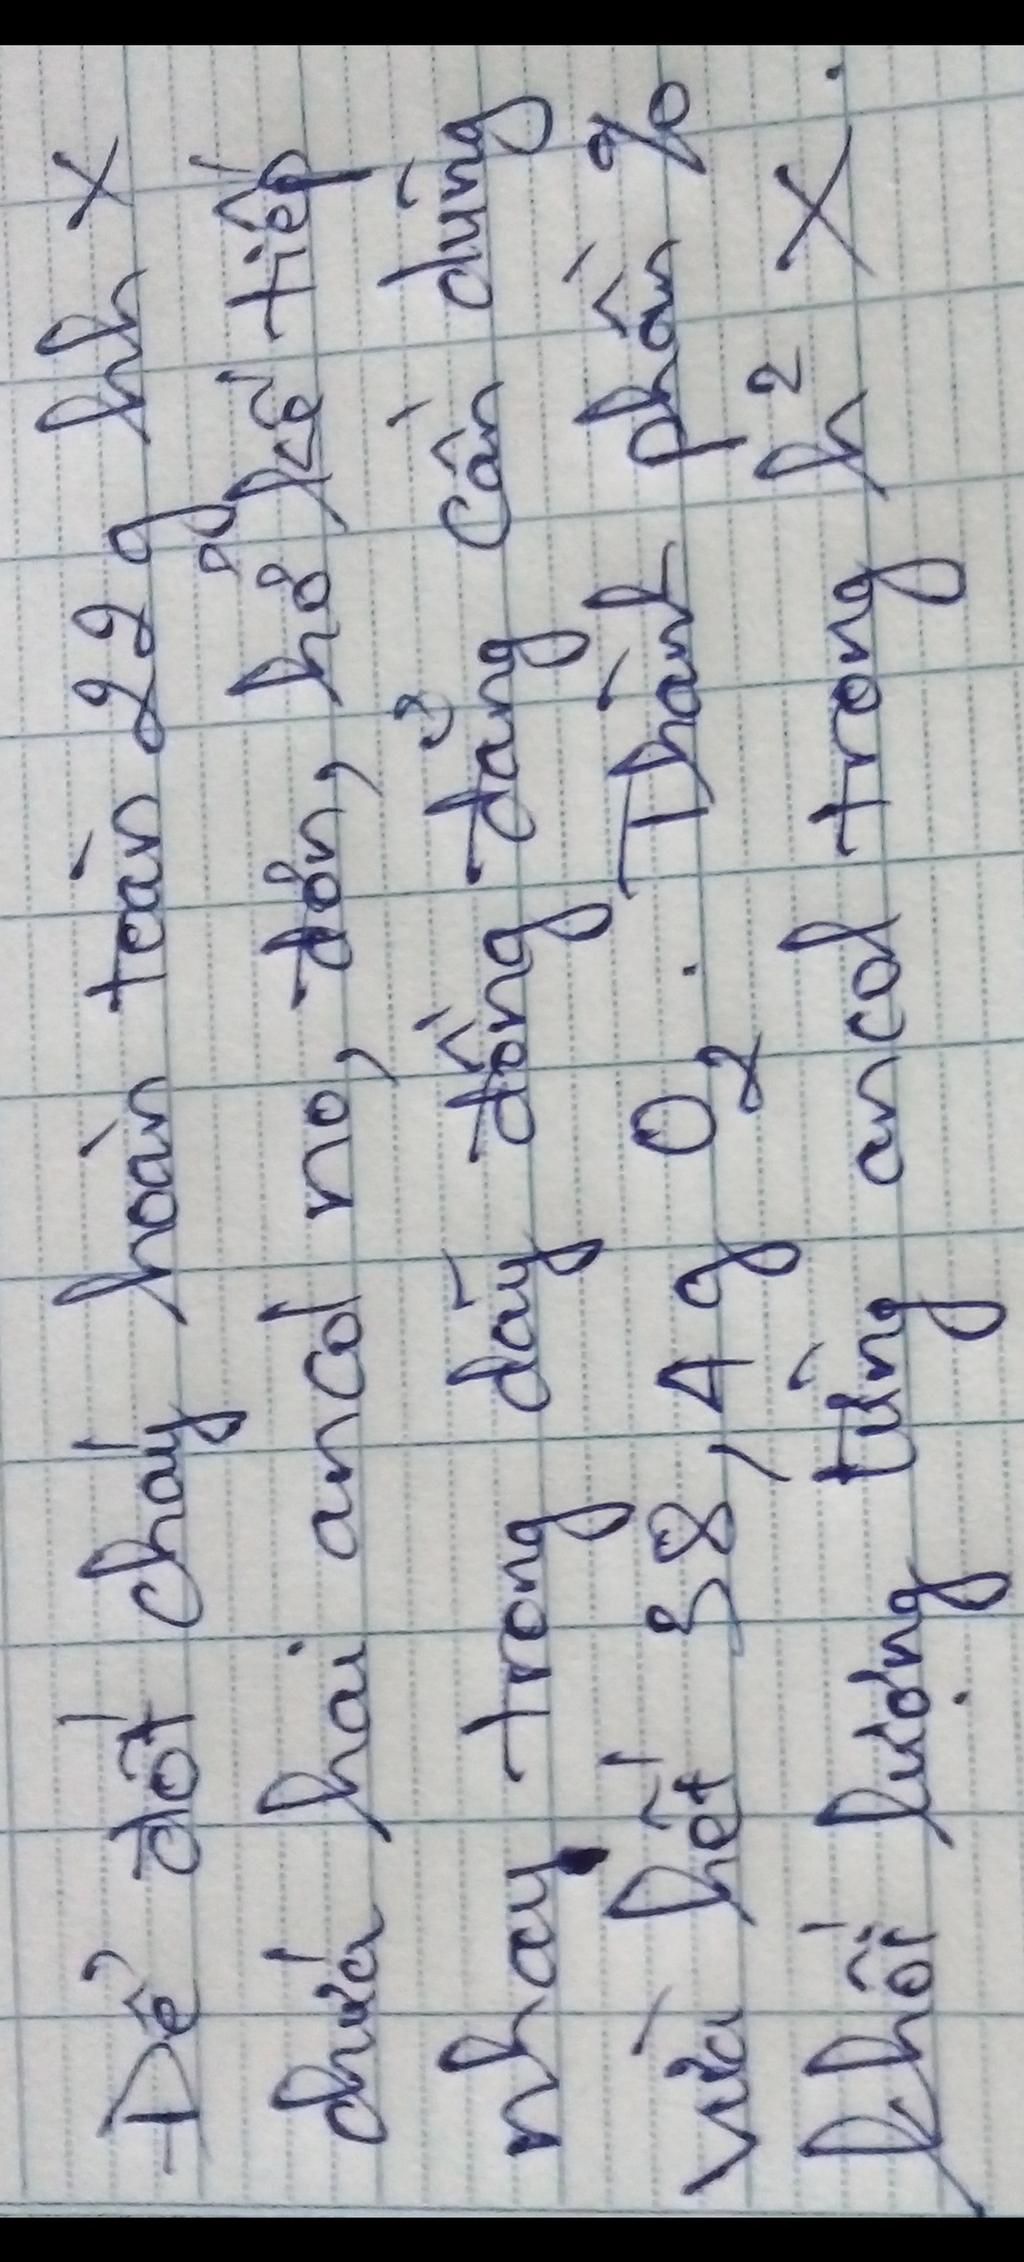 Để đốt cháy hoàn toàn 22g hh X
chứa hai ancol no, đơn, hở kế tiếp
nhau trong dãy đồng đẳng cần dùng
vừa hết 38,4g O2. Thành phần %
khối lượng từng ancol trong h² X.